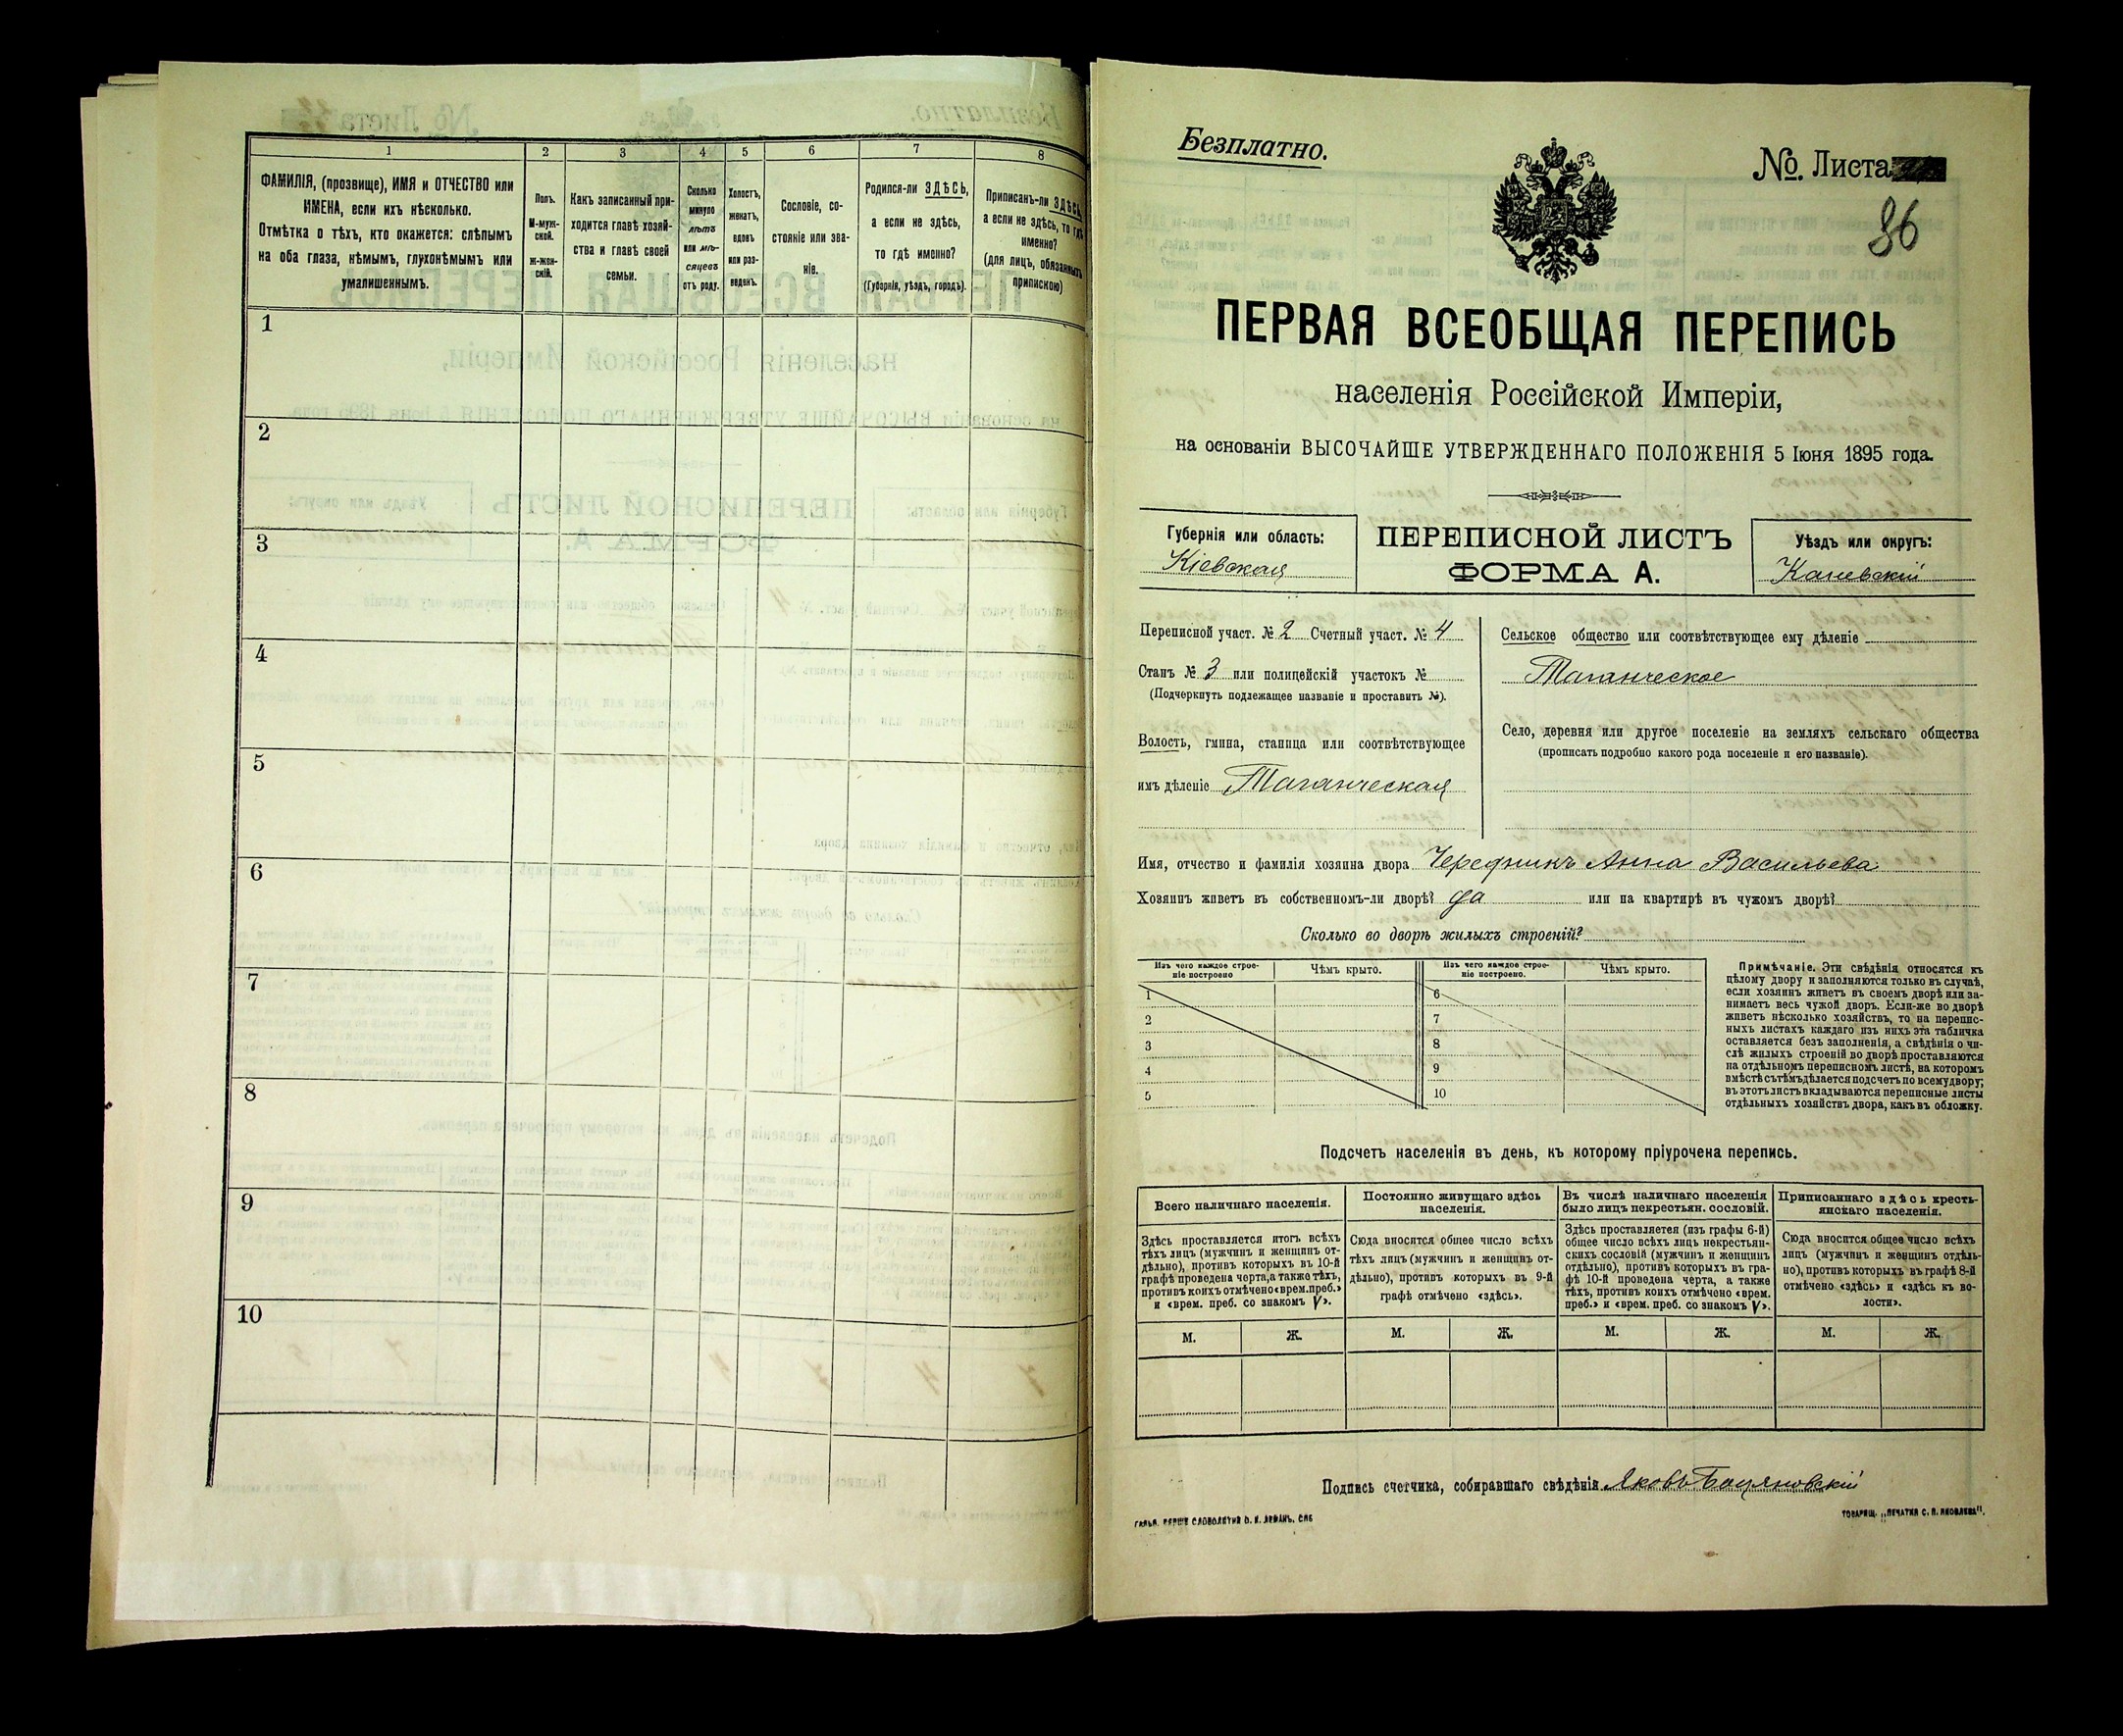 1
2
3
4
5
6
7
8
ФАМИЛІЯ, (прозвище), ИМЯ и ОТЧЕСТВО или
ИМЕНА, если ихъ нѣсколько.
Отмѣтка о тѣхъ, кто окажется: слѣпымъ
на оба глаза, нѣмымъ, глухонѣмымъ или
умалишеннымъ.
Полъ.
М-муж-
ской.
Ж-жен-
скій.
Какъ записанный при-
ходится главѣ хозяй-
ства и главѣ своей
семьи.
Сколько
минуло
лѣтъ
или мѣ-
сяцевъ
отъ роду.
Холостъ,
женатъ,
вдовъ
или раз-
веденъ.
Сословіе, со-
стояніе или зва-
ніе.
Родился-ли ЗДѢСЬ,
а если не здѣсь,
то гдѣ именно?
(Губернія, уѣздъ, городъ).
Приписанъ-ли ЗДѢСЬ,
а если не здѣсь, то гдѣ
именно?
(для лицъ, обязанныхъ
припискою)
1
2
3
4
5
6
7
8
9
10
Безплатно.
№. Листа
36
ПЕРВАЯ ВСЕОБЩАЯ ПЕРЕПИСЬ
населенія Россійской Имперіи,
на основаніи ВЫСОЧАЙШЕ УТВЕРЖДЕННАГО ПОЛОЖЕНІЯ 5 Іюня 1895 года.
Губернія или область:
Кіевская
ПЕРЕПИСНОЙ ЛИСТЪ
ФОРМА А.
Уѣздъ или округъ:
Каневскій
Переписной участ. № 2 Счетный участ. № 4
Станъ № 3 или полицейскій участокъ №
(Подчеркнуть подлежащее названіе и проставить №).
Волость, гмина, станица или соотвѣтствующее
имъ дѣленіе Таганческая
Сельское общество или соотвѣтствующее ему дѣленіе
Таганческое
Село, деревня или другое поселеніе на земляхъ сельскаго общества
(прописать подробно какого рода поселеніе и его названіе).
Имя, отчество и фамилія хозяина двора Чередникъ Анна Васильева
Хозяинъ живетъ въ собственномъ-ли дворѣ? да или на квартирѣ въ чужомъ дворѣ?
Сколько во дворѣ жилыхъ строеній?
Изъ чего каждое строе-
ніе построено
Чѣмъ крыто.
Изъ чего каждое строе-
ніе построено.
Чѣмъ крыто.
1
2
3
4
5
6
7
8
9
10
Примѣчаніе. Эти свѣдѣнія относятся къ
цѣлому двору и заполняются только въ случаѣ,
если хозяинъ живетъ въ своемъ дворѣ или за-
нимаетъ весь чужой дворъ. Если-же во дворѣ
живетъ нѣсколько хозяйствъ, то на перепис-
ныхъ листахъ каждаго изъ нихъ эта табличка
оставляется безъ заполненія, а свѣдѣнія о чи-
слѣ жилыхъ строеній во дворѣ проставляются
на отдѣльномъ переписномъ листѣ, на которомъ
вмѣстѣ съ тѣмъ дѣлается подсчетъ по всему двору;
въ этотъ листъ вкладываются переписные листы
отдѣльныхъ хозяйствъ двора, какъ въ обложку.
Подсчетъ населенія въ день, къ которому пріурочена перепись.
Всего наличнаго населенія.
Постоянно живущаго здѣсь
населенія.
Въ числѣ наличнаго населенія
было лицъ некрестьян. сословій.
Приписаннаго здѣсь кресть-
янскаго населенія.
Здѣсь проставляется итогъ всѣхъ
тѣхъ лицъ (мужчинъ и женщинъ от-
дѣльно), противъ которыхъ въ 10-й
графѣ проведена черта, а также тѣхъ,
противъ коихъ отмѣчено «врем. преб.»
и «врем. преб. со знакомъ V».
Сюда вносится общее число всѣхъ
тѣхъ лицъ (мужчинъ и женщинъ от-
дѣльно), противъ которыхъ въ 9-й
графѣ отмѣчено «здѣсь».
Здѣсь проставляется (изъ графы 6-й)
общее число всѣхъ лицъ некрестьян-
скихъ сословій (мужчинъ и женщинъ
отдѣльно), противъ которыхъ въ гра-
фѣ 10-й проведена черта, а также
тѣхъ, противъ коихъ отмѣчено «врем.
преб.» и «врем. преб. со знакомъ V».
Сюда вносится общее число всѣхъ
лицъ (мужчинъ и женщинъ отдѣль-
но), противъ которыхъ въ графѣ 8-й
отмѣчено «здѣсь» и «здѣсь къ во-
лости».
М.
Ж.
М.
Ж.
М.
Ж.
М.
Ж.
Подпись счетчика, собиравшаго свѣдѣнія Яковъ Бацяновскій
ТОВАРИЩ. „ПЕЧАТНЯ С. П. ЯКОВЛЕВА".